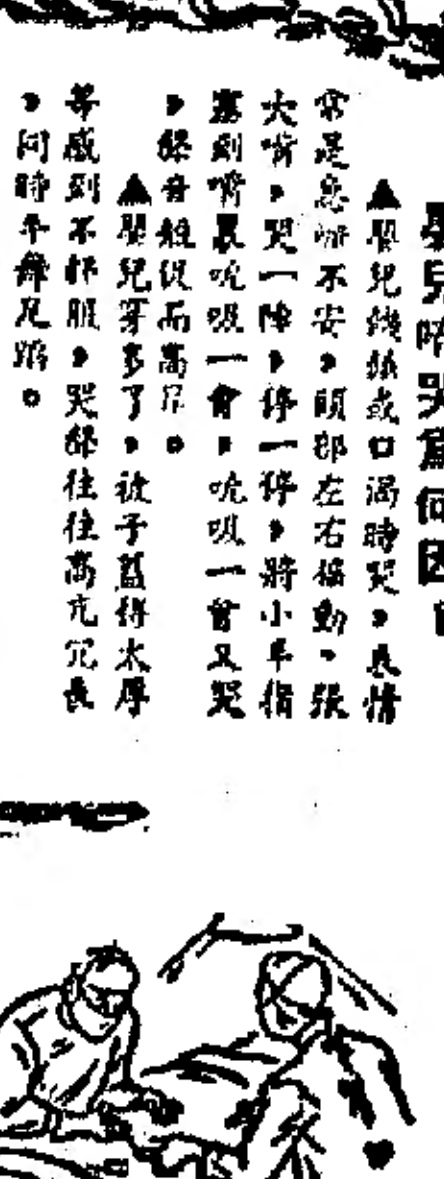 嬰兒啼哭爲何因
▲嬰兒饑餓或口渴時哭，表情
常是急噪不安，頭部左右搖動，張
大嘴，哭一陣，停一停，將小手指
塞到嘴裏吮吸一會，吮吸一會又哭
，聲音起伏而高昂。
▲嬰兒穿多了，被子蓋得太厚
等感到不舒服，哭聲往往高亢冗長
，同時手舞足蹈。